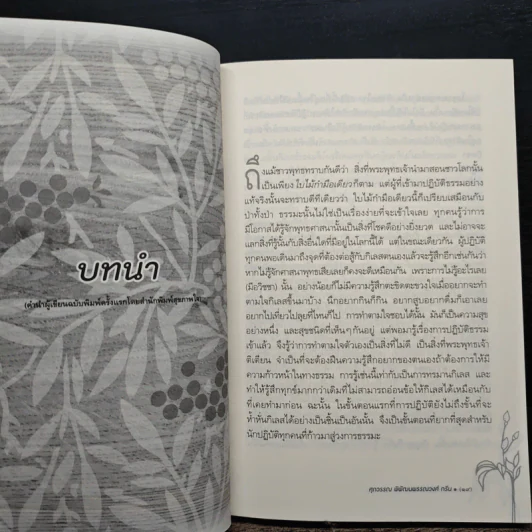 บทนำ
(คำนำผู้เขียนฉบับพิมพ์ครั้งแรกโดยสำนักพิมพ์สุขภาพใจ)
ถึงแม้ชาวพุทธทราบกันดีว่า สิ่งที่พระพุทธเจ้านำมาสอนชาวโลกนั้น
เป็นเพียง ใบไม้กำมือเดียว ก็ตาม แต่ผู้ที่เข้ามาปฏิบัติธรรมอย่าง
แท้จริงนั้นจะทราบดีทีเดียวว่า ใบไม้กำมือเดียวนี้ก็เปรียบเสมือนกับ
ป่าทั้งป่า ธรรมะนั้นไม่ใช่เป็นเรื่องง่ายที่จะเข้าใจเลย ทุกคนรู้ว่าการ
มีโอกาสได้รู้จักพุทธศาสนานั้นเป็นสิ่งที่โชคดีอย่างยิ่งยวด และไม่อาจจะ
แลกสิ่งที่รู้นั้นกับสิ่งอื่นใดที่มีอยู่ในโลกนี้ได้ แต่ในขณะเดียวกัน ผู้ปฏิบัติ
ทุกคนพอเดินมาถึงจุดที่ต้องต่อสู้กับกิเลสตนเองแล้วจะรู้สึกอีกเช่นกันว่า
หากไม่รู้จักศาสนาพุทธเสียเลยก็คงจะดีเหมือนกัน เพราะการไม่รู้อะไรเลย
(มีอวิชชา) นั้น อย่างน้อยก็ไม่มีความรู้สึกตะขิดตะขวงใจเมื่ออยากจะทำ
ตามใจกิเลสขึ้นมาบ้าง นึกอยากกินก็กิน อยากสูบอยากดื่มก็เอาเลย
อยากไปเที่ยวไปลุยที่ไหนก็ไป การทำตามใจชอบได้นั้น มันก็เป็นความสุข
อย่างหนึ่ง และสุขชนิดที่เห็นๆ กันอยู่ แต่พอมารู้เรื่องการปฏิบัติธรรม
เข้าแล้ว จึงรู้ว่าการทำตามใจตัวเองเป็นสิ่งที่ไม่ดี เป็นสิ่งที่พระพุทธเจ้า
ติเตียน จำเป็นที่จะต้องฝืนความรู้สึกอยากของตนเองถ้าต้องการให้มี
ความก้าวหน้าในทางธรรม การรู้เช่นนี้เท่ากับเป็นการทรมานกิเลส และ
ทำให้รู้สึกทุกข์มากกว่าเดิมที่ไม่สามารถอ่อนข้อให้กิเลสได้เหมือนกับ
ที่เคยทำมาก่อน ฉะนั้น ในขั้นตอนแรกที่การปฏิบัติยังไม่ถึงขั้นที่จะ
ห้ำหั่นกิเลสได้อย่างเป็นชิ้นเป็นอันนั้น จึงเป็นขั้นตอนที่ยากที่สุดสำหรับ
นักปฏิบัติทุกคนที่ก้าวมาสู่วงการธรรมะ
ศุภวรรณ พิพัฒพรรณวงศ์ กรีน